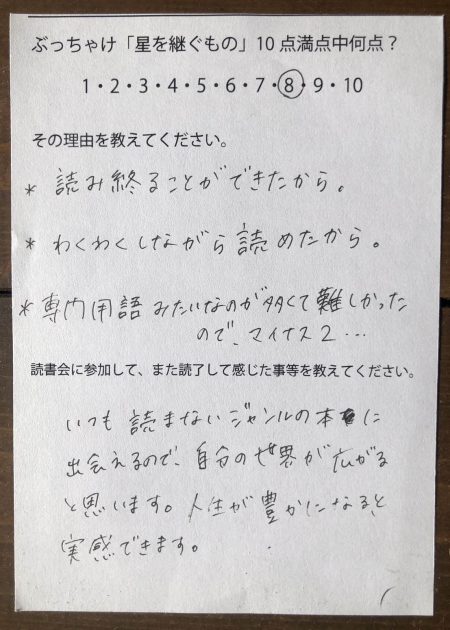 ぶっちゃけ「星を継ぐもの」10点満点中何点？
1・2・3・4・5・6・7・8・9・10
その理由を教えてください。
* 読み終ることができたから。
* わくわくしながら読めたから。
* 専門用語みたいなのが多くて難しかった
ので、マイナス2…
読書会に参加して、また読了して感じた事等を教えてください。
いつも読まないジャンルの本に
出会えるので、自分の世界が広がる
と思います。人生が豊かになると、
実感できます。